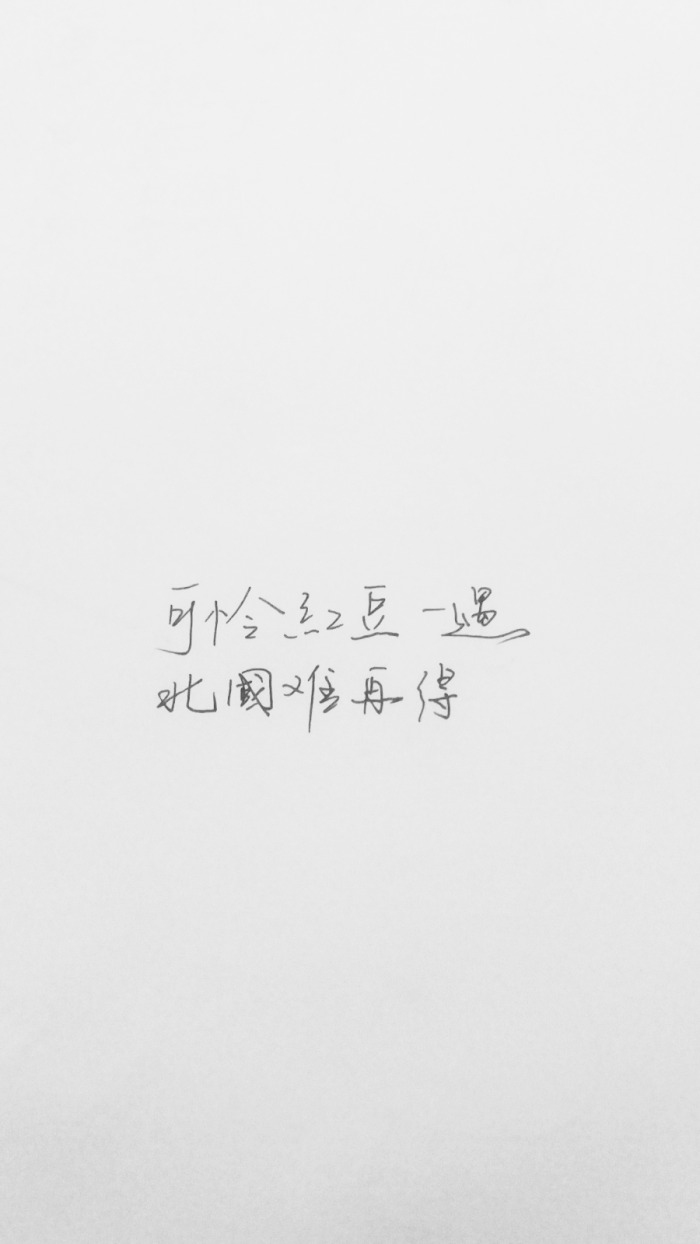 可怜紅豆一遇
北國难再得